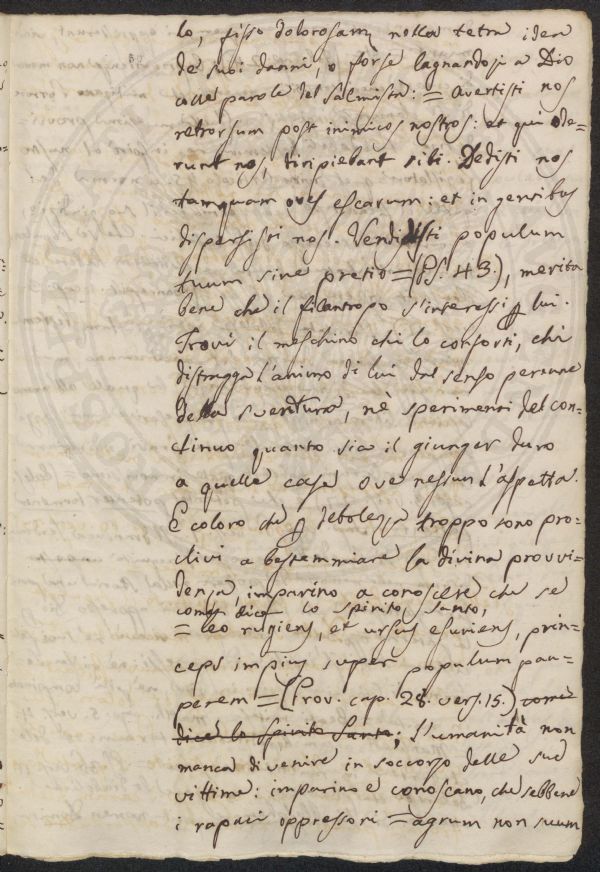 lo, fisso dolorosam. nella tetra idea
de' suoi danni, o forse lagnandosi a Dio
colle parole del Salmista: = Avertisti nos
retrorsum post inimicos nostros: et qui ode=
runt nos, diripiebant sibi. Dedisti nos
tamquam oves escarum: et in gentibus
dispersisti nos. Vendidisti populum
tuum sine pretio = (Ps. 43.), merita
bene che il filantropo s'interessi p lui.
Trovi il meschino chi lo conforti, chi
distragga l'animo di lui dal senso perenne
della sventura, nè sperimenti del con=
tinuo quanto sia il giunger duro
a quelle case ove nessun l'aspetta.
E coloro che p debolezza troppo sono pro=
clivi a bestemmiare la divina provvi=
denza, imparino a conoscere che se
come dice lo Spirito Santo,
= leo rugiens, et ursus esuriens, prin=
ceps impius super populum pau=
perem = (Prov. cap. 28. vers. 15.) come
dice lo Spirito Santo; l'umanità non
manca di venire in soccorso delle sue
vittime: imparino e conoscano, che sebbene
i rapaci oppressori = agrum non suum